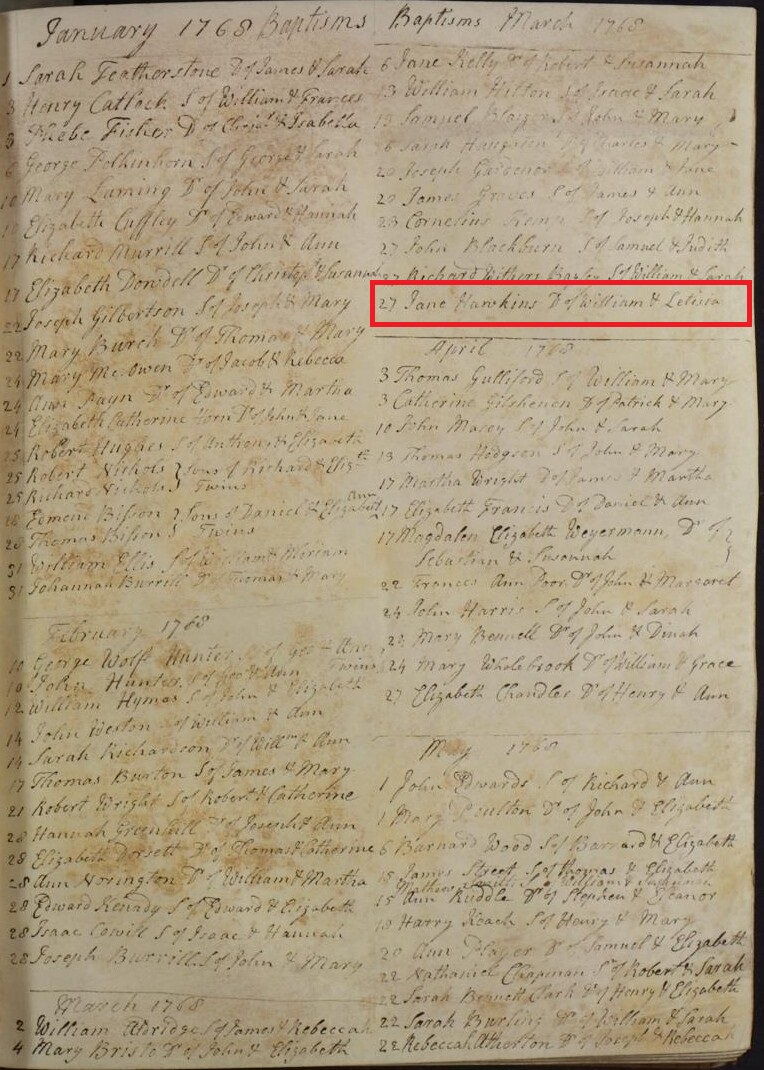 January 1768 Baptisms
1 Sarah Featherstone Dr of James & Sarah
3 Henry Catlock S of William & Frances
3 Phebe Fisher D of & Isabella
6 George Folkinhorn S of George & Sarah
10 Mary Luming Dr of John & Sarah
10 Elizabeth Cuffley Dr of Edward & Hannah
17 Richard Murrill S of John & Ann
17 Elizabeth Dowdell Dr of Christopr & Susanah
22 Joseph Gilbertson S of Joseph & Mary
22 Mary Burch Dr of Thomas & Mary
24 Mary Mc. Owen Dr of Jacob & Rebecca
24 Ann Payn Dr of Edward & Martha
24 Elizabeth Catherine Horn Dr of John & Jane
25 Robert Hughes S of Anthony & Elizabeth
25 Robert Nichols } Sons of Richard & Elizth
25 Richard Nichols } Twins
28 Edmend Bilson } Sons of Daniel & Elizabeth Ann
28 Thomas Bilson } Twins
31 William Ellis S of William & Miriam
31 Johannah Burrill Dr Thomas & Mary
February 1768
10 George Wolfe Hunter S of Geo & Ann
10 John Hunter S of Geo & Ann Twins
12 William Hymas S of John & Elizabeth
14 John Weston S of William & Ann
14 Sarah Richardson Dr of Willm & Ann
17 Thomas Burton S of James & Mary
21 Robert Wright S of Robert & Catherine
28 Hannah Greenhill Dr of Joseph & Ann
28 Elizabeth Dorsett Dr of Thomas & Catherine
28 Ann Norington Dr of William & Martha
28 Edward Kenady S of Edward & Elizabeth
28 Isaac Cowill S of Isaac & Hannah
28 Joseph Burrill S of John & Mary
March 1768
2 William Aldridge S of James & Rebeccah
4 Mary Bristo Dr of John & Elizabeth
Baptisms March 1768
6 Jane Kelly Dr of Robert & Susannah
13 William Hilton S of Isaac & Sarah
Samuel S of John & Mary
Sarah Dr of Charles & Mary
20 Joseph Gardener S of William & Jane
20 James Graves S of James & Ann
23 Cornelius Kemp S of Joseph & Hannah
27 John Blackburn S of Samuel & Judith
27 Richard Withers Bayley S of William & Sarah
27 Jane Hawkins Dr of William & Letisia
April 1768
3 Thomas Gulliford S of William & Mary
3 Catherine Gilshenen D of Patrick & Mary
10 John Macey S of John & Sarah
13 Thomas Hodgson S of John & Mary
17 Martha Wright D of James & Martha
17 Elizabeth Francis Dr Daniel & Ann
17 Magdalen Elizabeth Weyermann, Dr of }
Sebastian & Susannah
22 Frances Ann Poor Dr of John & Margaret
24 John Harris S of John & Sarah
24 Mary Bennell Dr of John & Dinah
24 Mary Wholebrook Dr of William & Grace
27 Elizabeth Chandler Dr of Henry & Ann
May 1768
1 John Edwards S of Richard & Ann
1 Mary Poulton Dr of John & Elizabeth
6 Barnard Wood S of Barnard & Elizabeth
15 James Street S of Thomas & Elizabeth
S of William &
15 Ann Ruddle Dr of Stephen & Eleanor
18 Harry Keach S of Henry & Mary
20 Ann Player Dr of Samuel & Elizabeth
22 Nathaniel Chapman S of Robert & Sarah
22 Sarah Bennett Clark Dr of Henry & Elizabeth
22 Sarah Burling Dr of William & Sarah
22 Rebeccah Atherton Dr of Joseph & Rebeccah